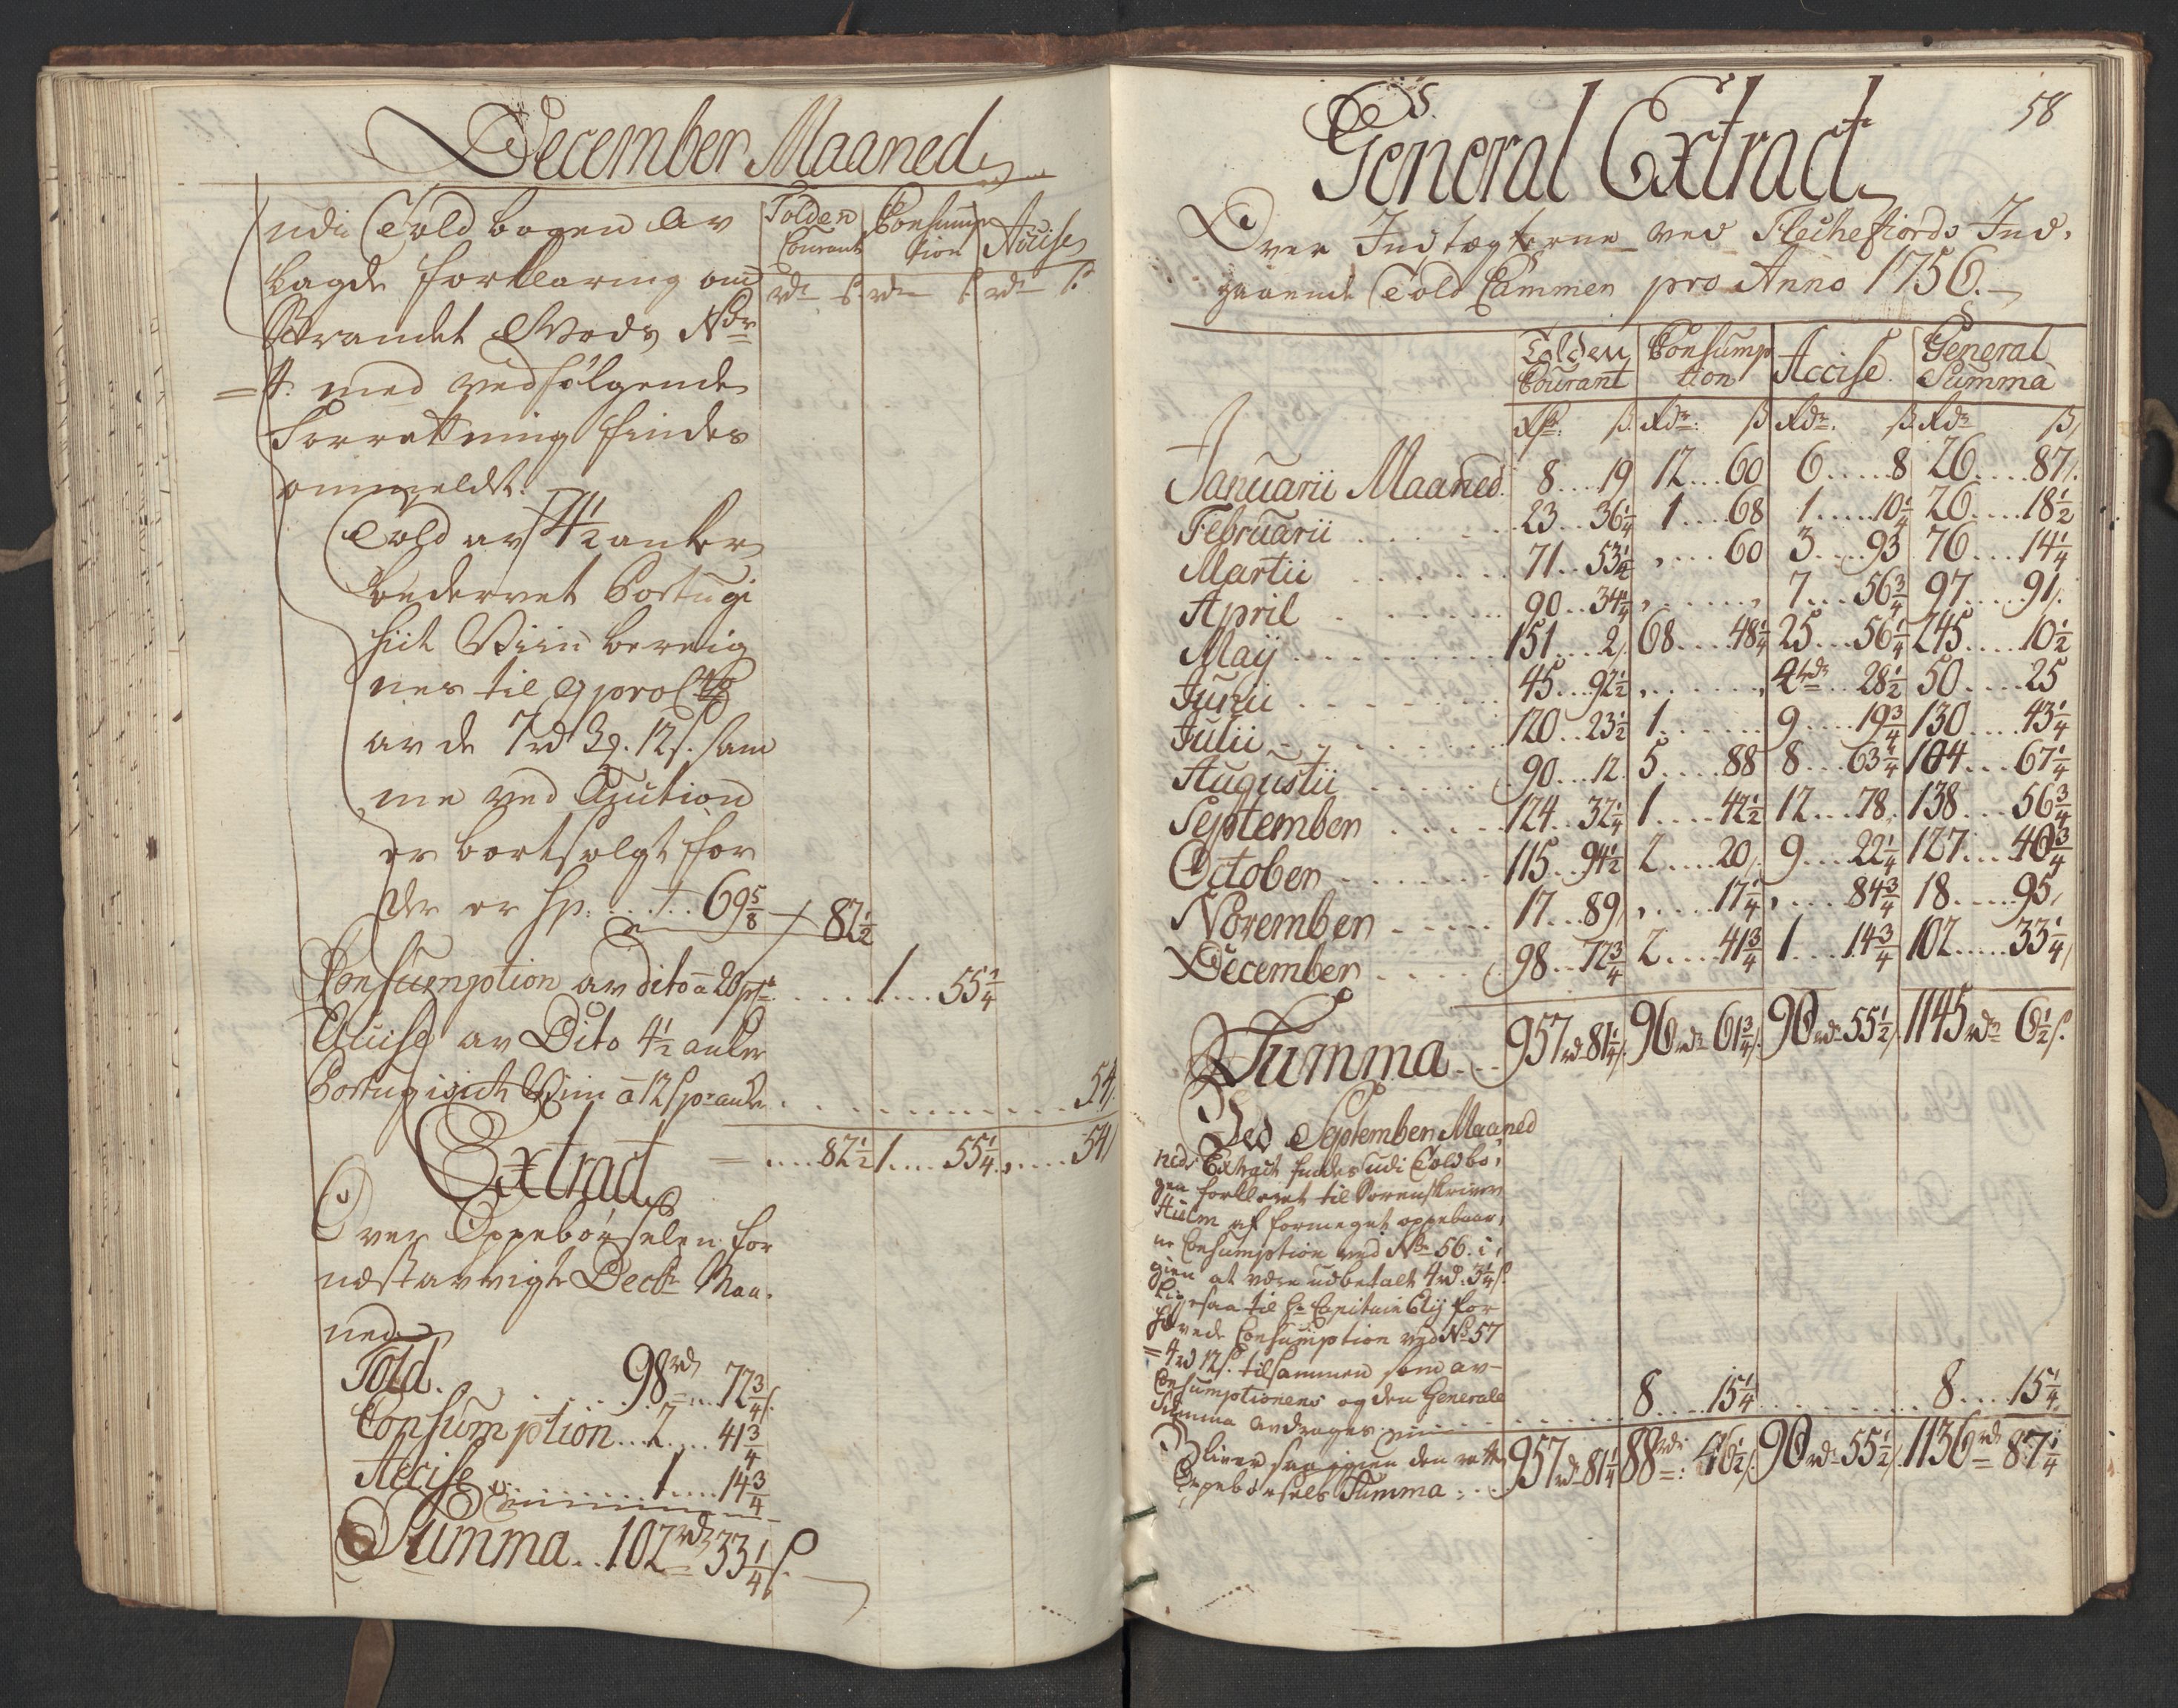 December Maaned
Tolden Courant | Consumption | Accise
rdr ß | rdr ß | rdr ß
udi Told bogen av
lagde forklaring om
Strandet Gods Nor
4. med vedfølgende
Forrettning findes
ommeldt.
Told av 4 1/2 anker
bedervet Portugi
siit Viin bereig
nes til 9 pro Cto
av de 7 rd 3 12 s. sam
me ved Auction
er bortsolgt for
der er sp: .... 69 5/8 82 1/2
Consumption av dito a 20 ... 1 .. 55 1/4
Accise av Dito 4 1/2 anker
Portugisisk Viin a 12 s pr anker . . . . 54
.... 82 1/2 1 .... 55 1/4 , .... 54
Extract
Over Oppebørselen for
næstavvigte Decbr Maa-
ned
Told. . . . . 98 rd .. 72 3/4 s.
Consumption .. 2 ... 41 3/4
Accise . . . 1 .... 14 3/4
Summa .. 102 rd 33 1/4 s.
58
General Extract
Over Indtægterne ved Flechefiords Ind-
gaaende Told Cammer pro Anno 1756.
Tolden Courant | Consumption | Accise | General Summa
Rdr: ß | Rdr: ß | Rdr: ß | Rdr ß
Januarii Maaned. 8 ... 19 12 ... 60 6 ..... 8 26 .... 87
Februarii . . . 23 .. 36 1/4 1 .... 68 1 ..... 10 1/4 26 .... 18 1/2
Martii . . . 71 .. 53 1/4 , .... 60 3 .... 93 76 .... 14 1/4
April . . . 90 .. 34 1/4 , ...... , 7 ... 56 3/4 97 .... 91
Maij . . . 151 ... 2 68 ... 48 1/4 25 ... 56 1/4 245 .... 10 1/2
Junii . . . 45 .. 92 1/2 , ...... , 4 rdr .. 28 1/2 50 .... 25
Julii . . . 120 .. 23 1/2 1 ...... 9 .... 19 3/4 130 .... 43 1/4
Augustii . . . 90 ... 12 5 .... 88 8 ... 63 1/4 104 ... 67 1/4
September . . . 124 .. 32 1/4 1 .... 42 1/2 12 ... 78 138 ... 56 3/4
October . . . 115 .. 94 1/2 2 .... 20 9 ... 22 1/4 127 ... 40 3/4
November . . . 17 ... 89 , .... 17 1/4 , .... 84 3/4 18 ..... 95
December . . . 98 .. 72 3/4 2 ... 41 3/4 1 ... 14 3/4 102 ..... 33 1/4
Summa ... 957 rd 81 1/4 s. 96 rdr 61 3/4 s. 90 rdr 55 1/2 s. 1145 rdr 6 1/2 s.
Ved September Maaned
neds Extract findes udi Toldbo-
gen forklaret til Sorenskriver
Hielm af formeget oppebaar-
ne Consumption ved No 56. i-
gien at være udbetalt 4 rd. 3 1/4 s.
Ligesaa til Hr Capitain Elij for
Consumption ved No 57
= 4 rd 12 s. tilsammen som av
Consumptionens og den Generale
Summa avdrages . . . 8 .... 15 1/4 . . . . 8 .... 15 1/4
Bliver saa igien den rette
Oppebørsels Summa . . . 957 rd 81 1/4 88 rdr: 46 1/2 s. 90 rdr 55 1/2 s. 1136 rd 87 1/4